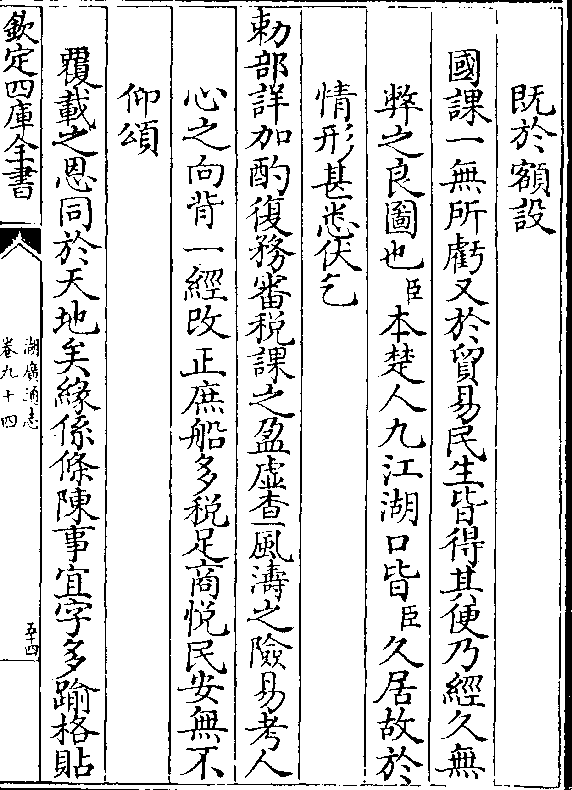 既於額設
國課一無所虧又於貿易民生皆得其便乃經久無
弊之良圖也臣本楚人九江湖口皆臣久居故於
情形甚悉伏乞
勅部詳加酌復務審税課之盈虛查風濤之險易考人
心之向背一經改正庶船多税足商悦民安無不
仰頌
覆載之恩同於天地矣緣係條陳事宜字多踰格貼
欽定四庫全書
湖廣通志
卷九十四
五十四